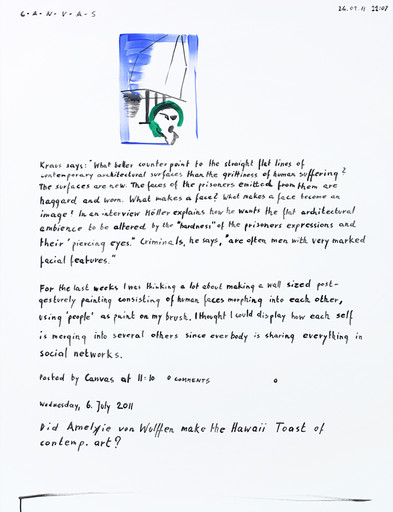 C·A·N·V·A·S
26.07.11 22:07
Kraus says: "What better counterpoint to the straight flat lines of
contemporary architectural surfaces than the grittiness of human suffering?
The surfaces are new. The faces of the prisoners emitted from them are
haggard and worn. What makes a face? What makes a face become an
image? In an interview Höller explains how he wants the flat architectural
ambience to be altered by the "hardness" of the prisoners expressions and
their 'piercing eyes." Criminals, he says, "are often men with very marked
facial features."
For the last weeks I was thinking a lot about making a wall sized post-
gesturely painting consisting of human faces morphing into each other,
using 'people' as paint on my brush. I thought I could display how each self
is merging into several others since everbody is sharing everything in
social networks.
Posted by Canvas at 11:10 0 COMMENTS
0
Wednesday, 6. July 2011
Did Amelie von Wulffen make the Hawaii Toast of
contemp. art?